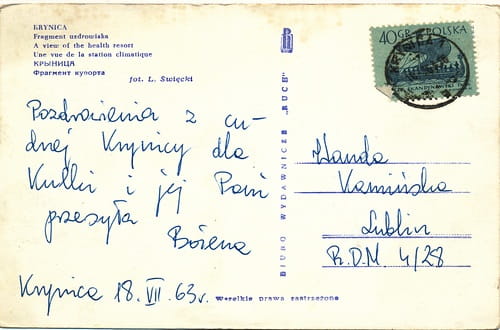 KRYNICA
Fragment uzdrowiska
A view of the health resort
Une vue de la station climatique
КРЫНИЦА
Фрагмент курорта
fot. L. Święcki
Pozdrowienia z cu-
dnej Krynicy dla
Kulki i jej Pani
przesyła
Bożena
Krynica 18. VII. 63r.
BIURO WYDAWNICZE „RUCH"
Wszelkie prawa zastrzeżone
40GR POLSKA
Wanda
Kamińska
Lublin
R.D.M. 4/28